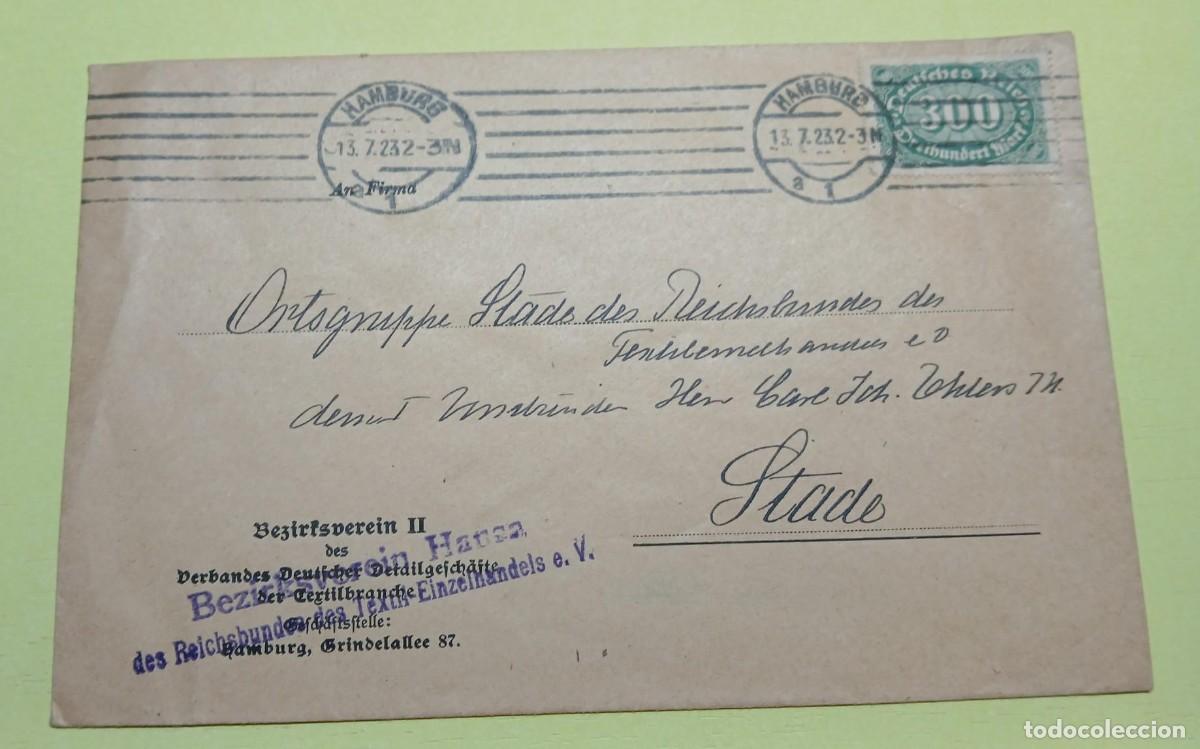 HAMBURG
13.7.23 2-3N
a 1
HAMBURG
13.7.23 2-3N
a 1
Deutsches Reich
300
Dreihundert Mark
An Firma
Ortsgruppe Stade des Reichsbundes des
e V
Herr Carl Joh. Ehlers
Stade
Bezirksverein II
des
Verbandes Deutscher Detailgeschäfte
der Textilbranche
Geschäftsstelle:
Hamburg, Grindelallee 87.
Bezirksverein Hansa
des Reichsbundes des Textil-Einzelhandels e. V.
todocoleccion